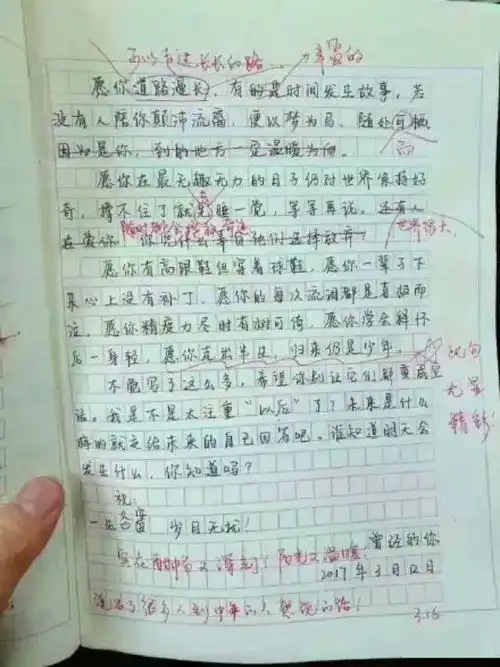 可以走过长长的路 丰富的
愿你道路漫长，有的是时间发生故事。若
没有人陪你颠沛流离，便以梦为马，随处可栖
因为是你，到的地方一定温暖为向。 而
愿你在最无趣无力的日子仍对世界保持好
奇，撑不住了就先睡一觉，等等再说，还有人
在爱你，你凭什么辜负他们选择放弃？ 世界很大
愿你有高跟鞋但穿着球鞋，愿你一辈子下
来心上没有补丁，愿你的每次流泪都是喜极而
泣，愿你精疲力尽时有树可倚，愿你学会释怀
后一身轻，愿你走出半生，归来仍是少年。 此句
尤显
精彩
不觉写了这么多，希望你别让它们都变成空
话。我是不是太注重“以后”了？未来是什么
样的就交给未来的自己回答吧。谁知道明天会
发生什么，你知道吗？
祝：
一生 岁月无忧！
实在 又深刻！阳光又温暖！
曾经的你
2017年3月12日
说出了很多人到中年的人想说的话！
3.16